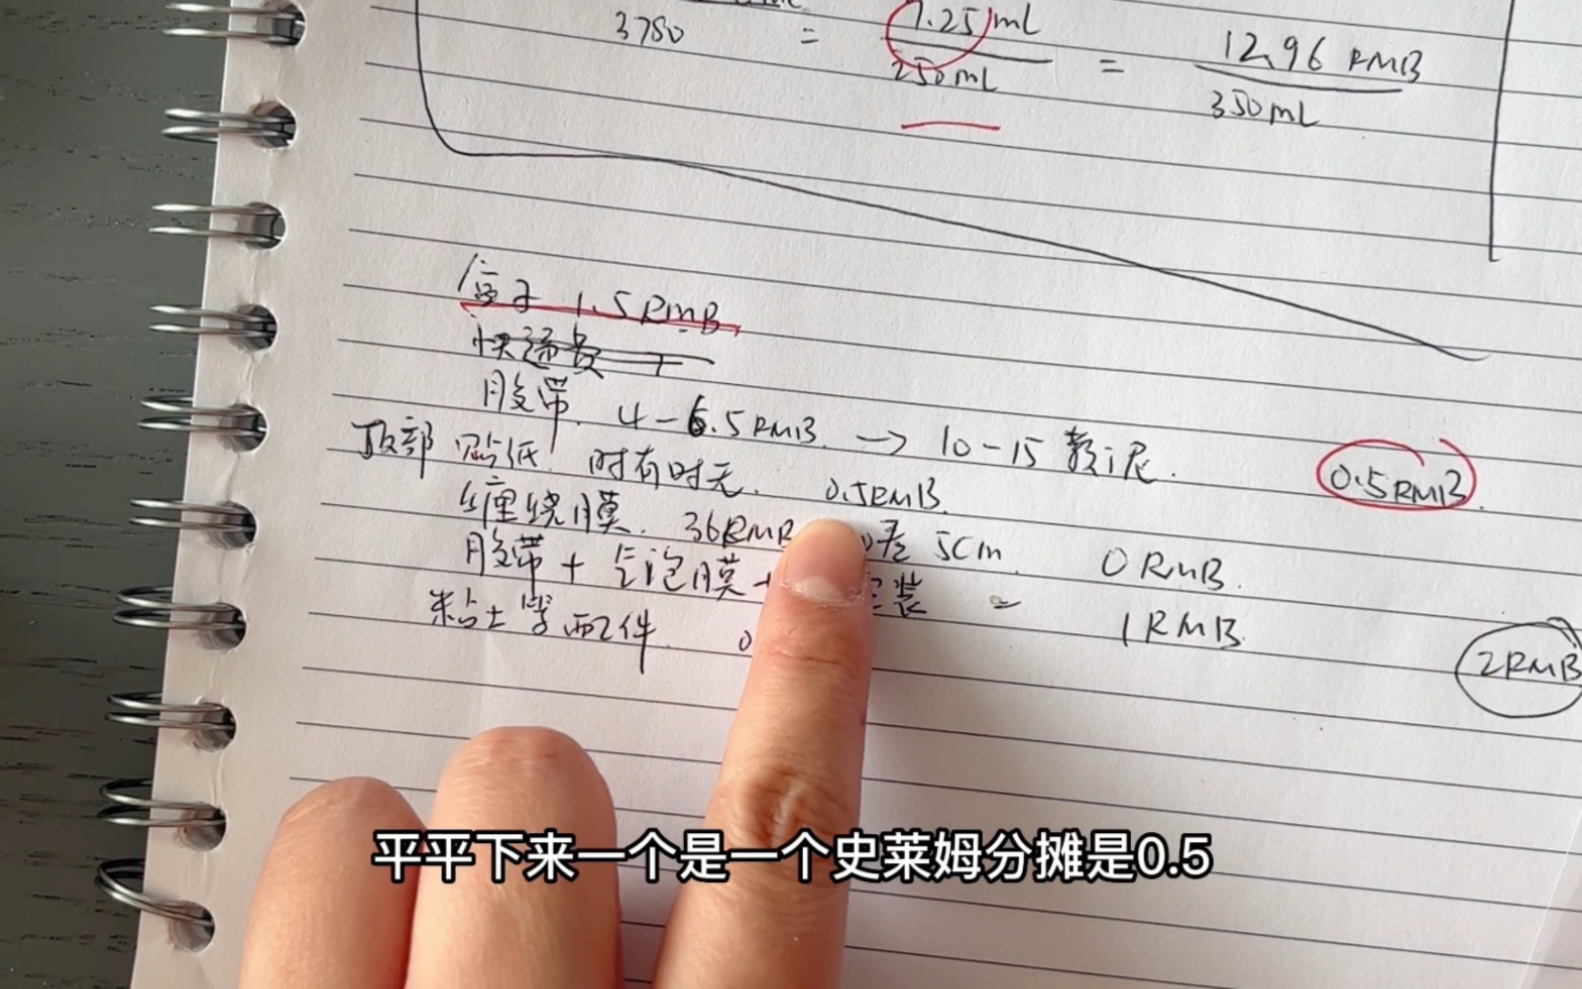 3780 = 7.25mL = 12.96 RMB
250mL 350mL
盒子 1.5RMB
快递费
胶带. 4-6.5RMB. → 10-15 款泥. 0.5RMB.
顶部贴纸! 时有时无. 0.5RMB.
缠绕膜. 36RMB 5cm. 0 RMB.
胶带 + 气泡膜 + 装 = 1RMB.
粘土学配件. 0 2RMB
平平下来一个是一个史莱姆分摊是0.5